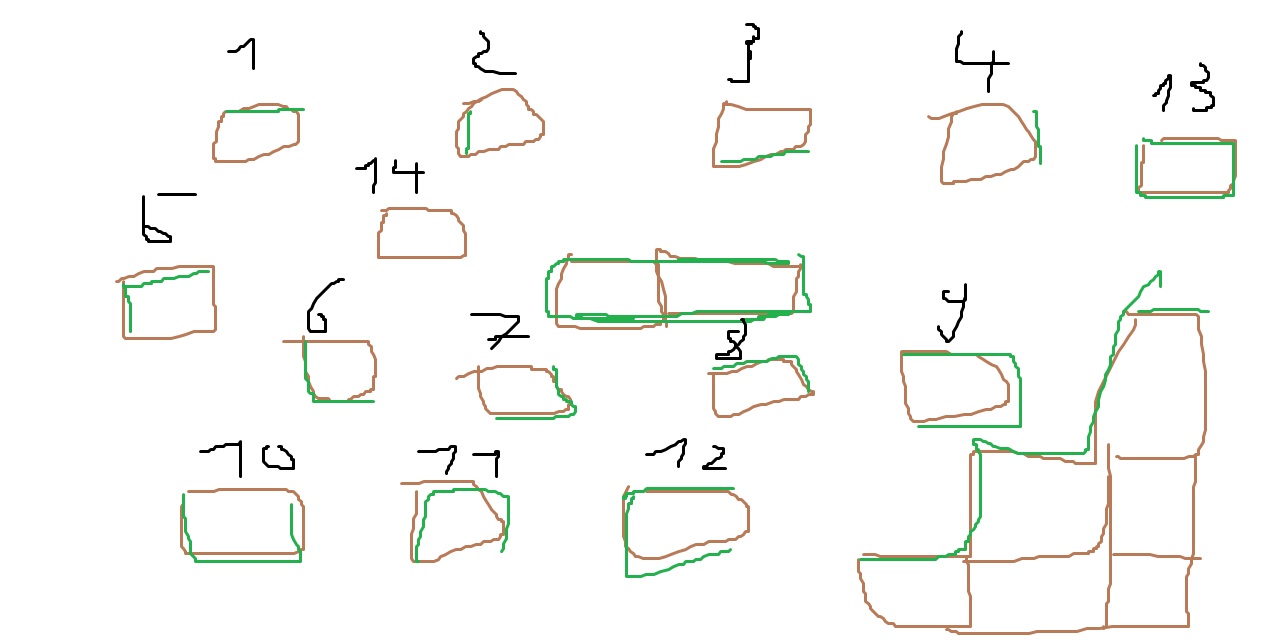 1 2 3 4 13
14
5
6 7 8 9
10 11 12